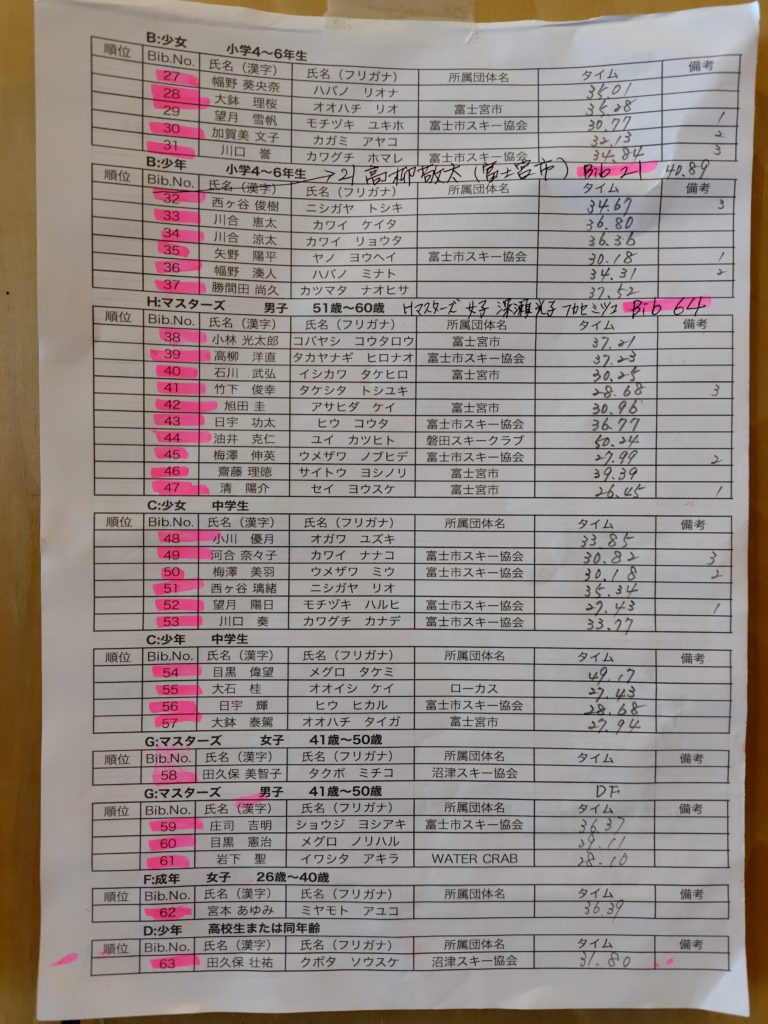 B:少女 小学4～6年生
順位 Bib.No. 氏名（漢字） 氏名（フリガナ） 所属団体名 タイム 備考
27 幅野 葵央奈 ハバノ リオナ 35.01
28 大鉢 理桜 オオハチ リオ 富士宮市 35.28
29 望月 雪帆 モチヅキ ユキホ 富士市スキー協会 30.77 1
30 加賀美 文子 カガミ アヤコ 32.13 2
31 川口 誉 カワグチ ホマレ 富士市スキー協会 34.84 3
B:少年 小学4～6年生 → 21 高柳敬太（富士宮市） Bib 21 40.89
順位 Bib.No. 氏名（漢字） 氏名（フリガナ） 所属団体名 タイム 備考
32 西ヶ谷 俊樹 ニシガヤ トシキ 34.67 3
33 川合 恵太 カワイ ケイタ 36.80
34 川合 涼太 カワイ リョウタ 36.36
35 矢野 陽平 ヤノ ヨウヘイ 富士市スキー協会 30.18 1
36 幅野 湊人 ハバノ ミナト 34.31 2
37 勝間田 尚久 カツマタ ナオヒサ 37.52
H:マスターズ 男子 51歳～60歳 Hマスターズ 女子 深瀬光子 フカセミツコ Bib 64
順位 Bib.No. 氏名（漢字） 氏名（フリガナ） 所属団体名 タイム 備考
38 小林 光太郎 コバヤシ コウタロウ 富士宮市 37.21
39 高柳 洋直 タカヤナギ ヒロナオ 富士市スキー協会 37.23
40 石川 武弘 イシカワ タケヒロ 富士宮市 30.25
41 竹下 俊幸 タケシタ トシユキ 28.68 3
42 旭田 圭 アサヒダ ケイ 富士宮市 30.96
43 日宇 功太 ヒウ コウタ 富士市スキー協会 36.77
44 油井 克仁 ユイ カツヒト 磐田スキークラブ 50.24
45 梅澤 伸英 ウメザワ ノブヒデ 富士市スキー協会 27.99 2
46 齋藤 理徳 サイトウ ヨシノリ 富士宮市 39.39
47 清 陽介 セイ ヨウスケ 富士宮市 26.45 1
C:少女 中学生
順位 Bib.No. 氏名（漢字） 氏名（フリガナ） 所属団体名 タイム 備考
48 小川 優月 オガワ ユズキ 33.85
49 河合 奈々子 カワイ ナナコ 富士市スキー協会 30.82 3
50 梅澤 美羽 ウメザワ ミウ 富士市スキー協会 30.18 2
51 西ヶ谷 璃緒 ニシガヤ リオ 35.34
52 望月 陽日 モチヅキ ハルヒ 富士市スキー協会 27.43 1
53 川口 奏 カワグチ カナデ 富士市スキー協会 33.77
C:少年 中学生
順位 Bib.No. 氏名（漢字） 氏名（フリガナ） 所属団体名 タイム 備考
54 目黒 偉望 メグロ タケミ 49.17
55 大石 桂 オオイシ ケイ ローカス 27.43
56 日宇 輝 ヒウ ヒカル 富士市スキー協会 28.68
57 大鉢 泰駕 オオハチ タイガ 富士宮市 27.94
G:マスターズ 女子 41歳～50歳
順位 Bib.No. 氏名（漢字） 氏名（フリガナ） 所属団体名 タイム 備考
58 田久保 美智子 タクボ ミチコ 沼津スキー協会
G:マスターズ 男子 41歳～50歳 DF
順位 Bib.No. 氏名（漢字） 氏名（フリガナ） 所属団体名 タイム 備考
59 庄司 吉明 ショウジ ヨシアキ 富士市スキー協会 36.37
60 目黒 憲治 メグロ ノリハル 29.11
61 岩下 聖 イワシタ アキラ WATER CRAB 28.10
F:成年 女子 26歳～40歳
順位 Bib.No. 氏名（漢字） 氏名（フリガナ） 所属団体名 タイム 備考
62 宮本 あゆみ ミヤモト アユコ 36.39
D:少年 高校生または同年齢
順位 Bib.No. 氏名（漢字） 氏名（フリガナ） 所属団体名 タイム 備考
63 田久保 壮祐 クボタ ソウスケ 沼津スキー協会 31.80